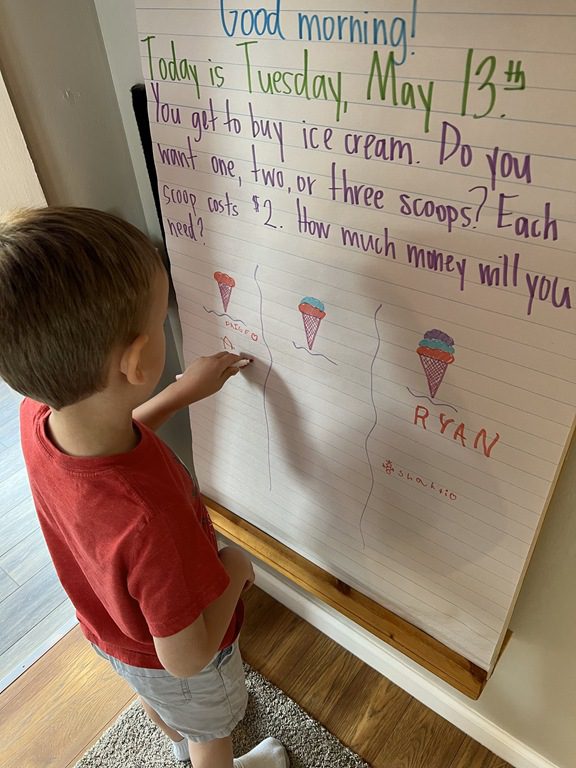 Good morning!
Today is Tuesday, May 13th.
You get to buy ice cream. Do you
want one, two, or three scoops? Each
scoop costs $2. How much money will you
need?
PAIGE
RYAN